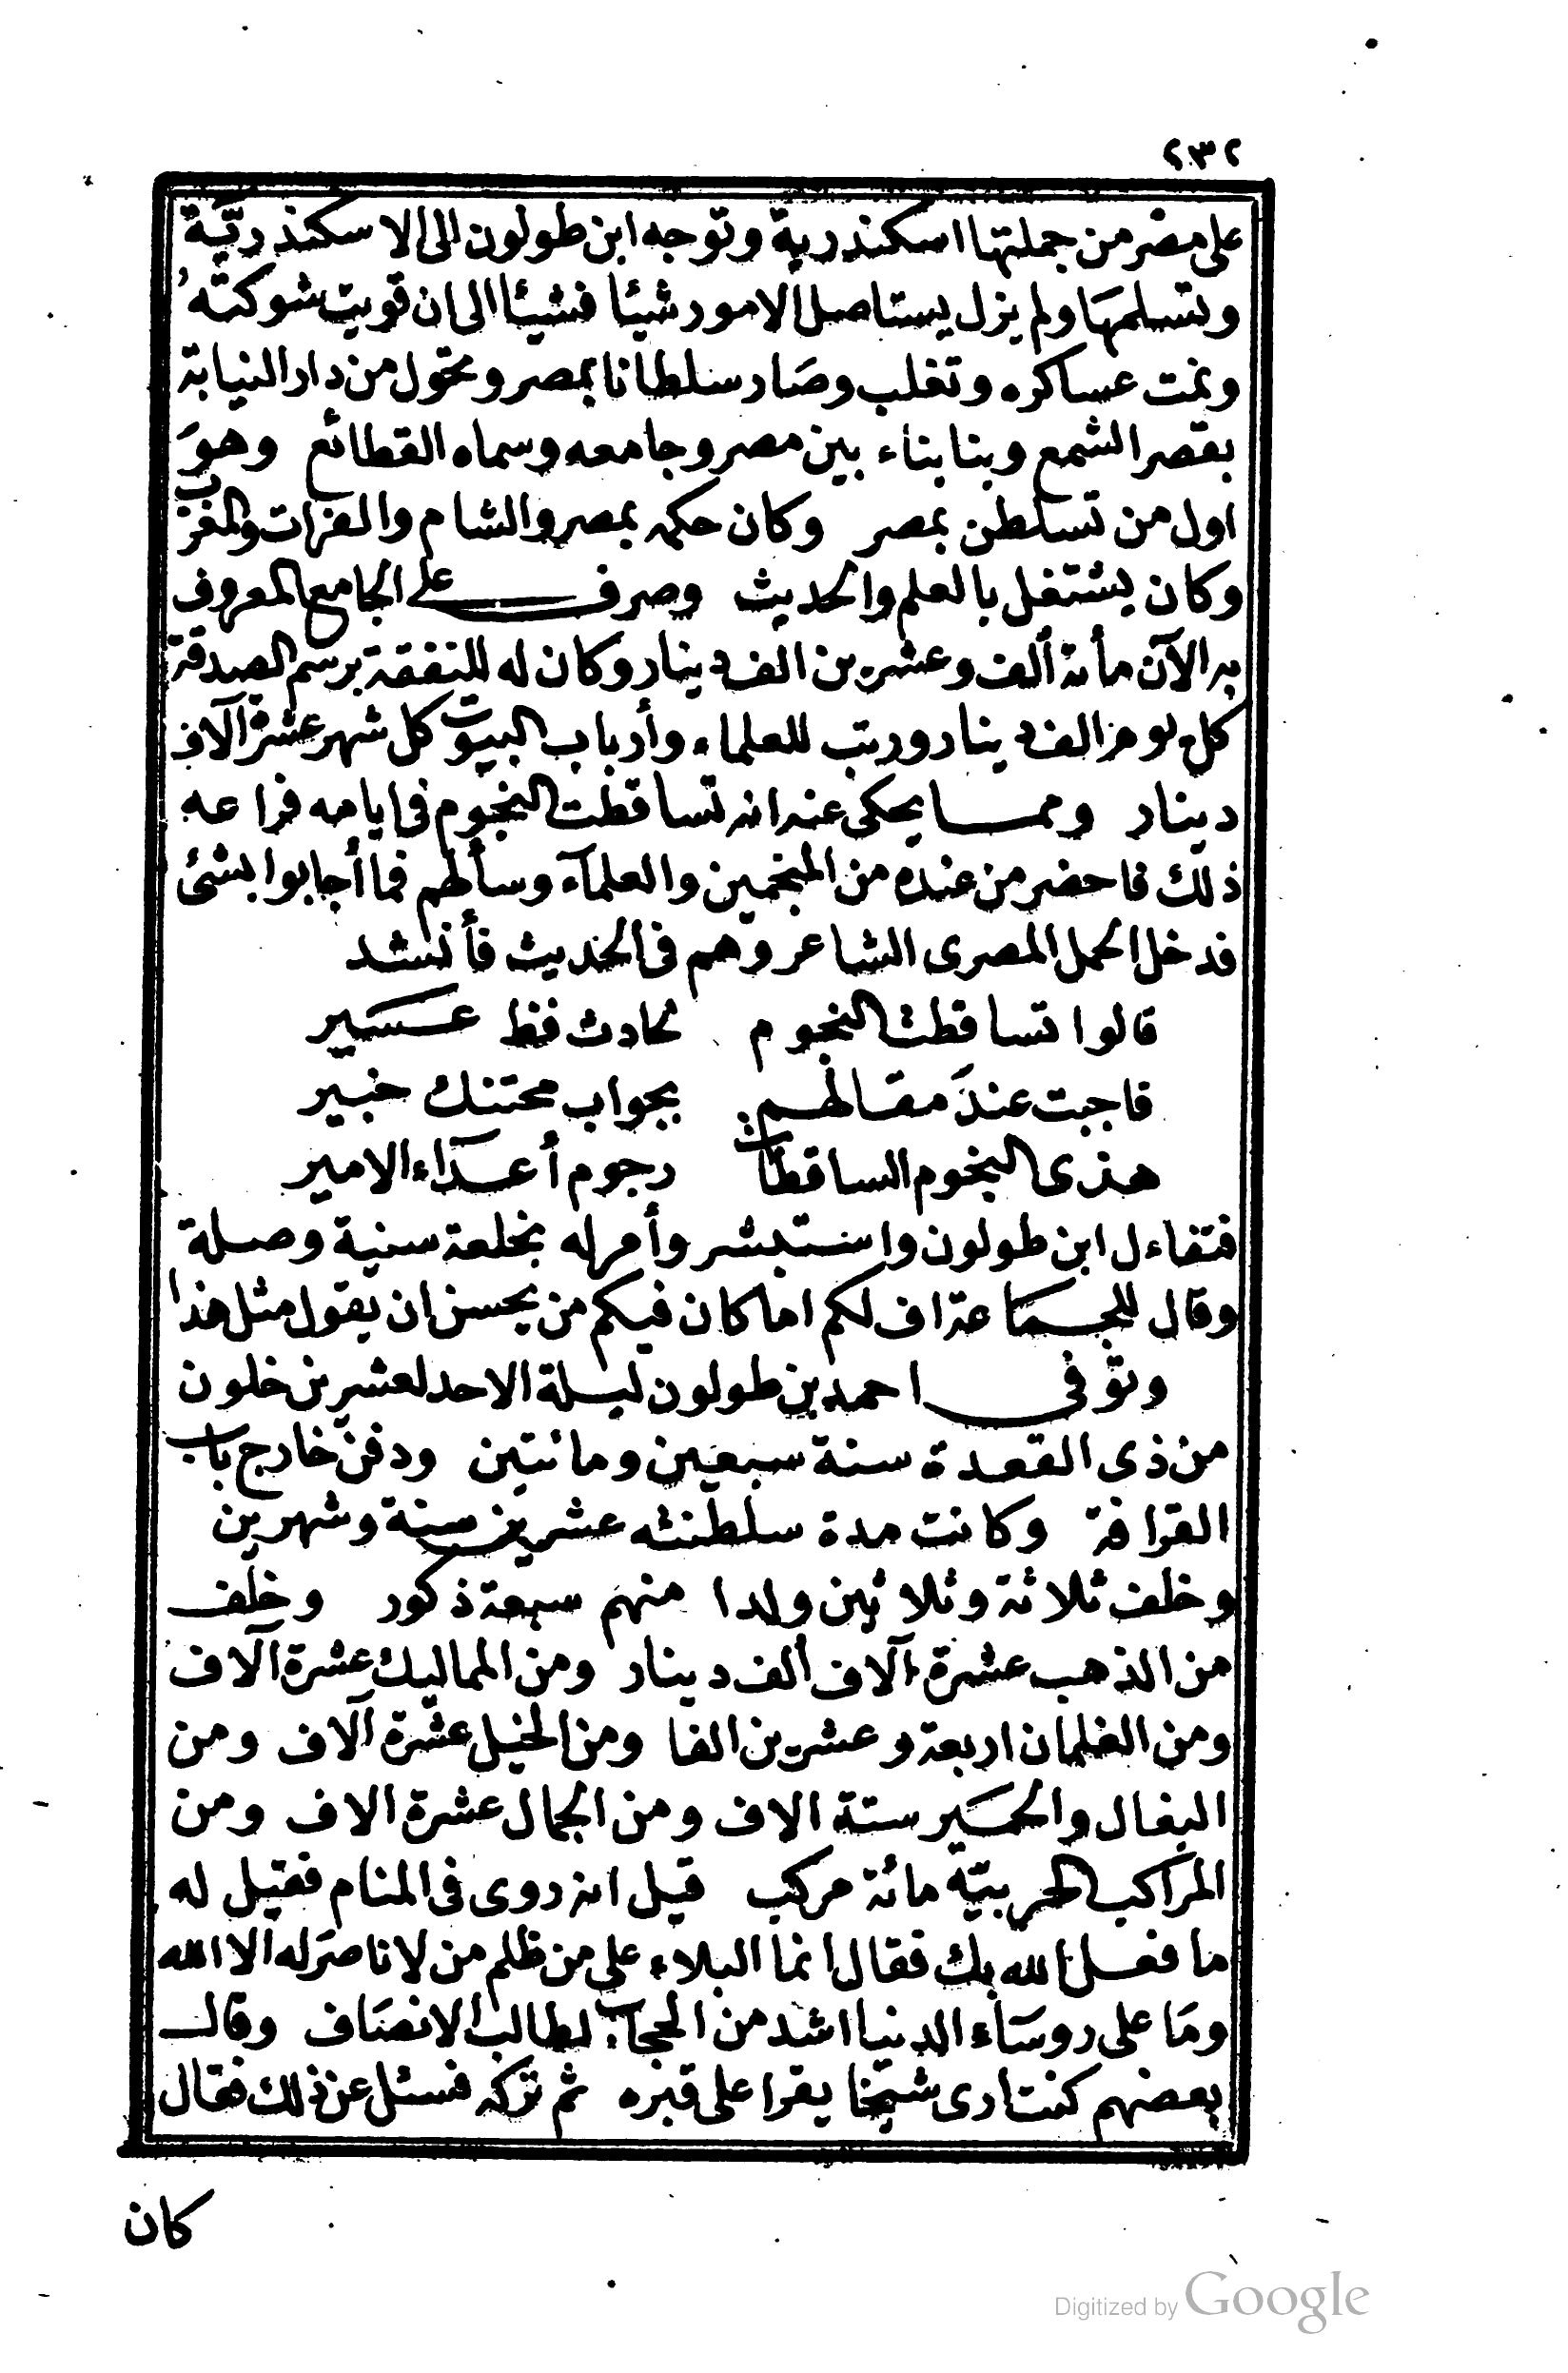 ٢٣٢
على مصر من جملتها اسكندرية وتوجه ابن طولون الى الاسكندريّة
وتسلمهَا ولم يزل يستاصل الامور شيئا فشيئا الى ان قويت شوكته
ونمت عساكره وتغلب وصَار سلطانا بمصر وتحول من دار النيابة
بقصر الشمع وبنا بناء بين مصر وجامعه وسماه القطائع وهوَ
اول من تسلطن بمصر وكان حكمه بمصر والشام والفرات والمغرب
وكان يشتغل بالعلم والحديث وصرف على الجامع المعروف
به الآن مأتة ألف وعشرين الف دينار وكان له للنفقة برسم الصدقة
كل يوم الف دينار ورتب للعلماء وأرباب البيوت كل شهر عشرة آلاف
دينار ومما يحكى عنه انه تساقطت النجوم فى ايامه فراعه
ذلك فاحضر من عنده من المنجمين والعلمآء وسألهم فما أجابوا بشئ
فدخل الجمل المصرى الشاعر وهم فى الحديث فأنشد
قالوا تساقطت النجوم لحادث فظ عسير
فاجبت عندَ مقالهم بجواب محتنك خبير
هذى النجوم الساقطات رجوم أعدَاء الامير
فتفاءل ابن طولون واستبشر وأمر له بخلعة سنية وصلة
وقال للجماعة اف لكم اما كان فيكم من يحسن ان يقول مثل هذا
وتوفى احمد بن طولون ليلة الاحد لعشرين خلون
من ذى القعدة سنة سبعين ومائتين ودفن خارج باب
القرافة وكانت مدة سلطنته عشرين سنة وشهرين
وخلف ثلاثة وثلاثين ولدا منهم سبعة ذكور وخلف
من الذهب عشرة آلاف ألف دينار ومن المماليك عشرة آلاف
ومن الغلمان اربعة وعشرين الفا ومن الخيل عشرة آلاف ومن
البغال والحمَير ستة الاف ومن الجمال عشرة الاف ومن
المراكب الحربيّة مائة مركب قيل انه روى فى المنام فقيل له
ما فعل الله بك فقال انما البلاء على من ظلم من لا ناصرَ له الا الله
ومَا على روسَاء الدنيا اشد من الحجاب لطالب الانصَاف وقال
بعضهم كنت ارى شيخا يقرا على قبره ثم تركه فسئل عن ذلك فقال
كان
Digitized by Google